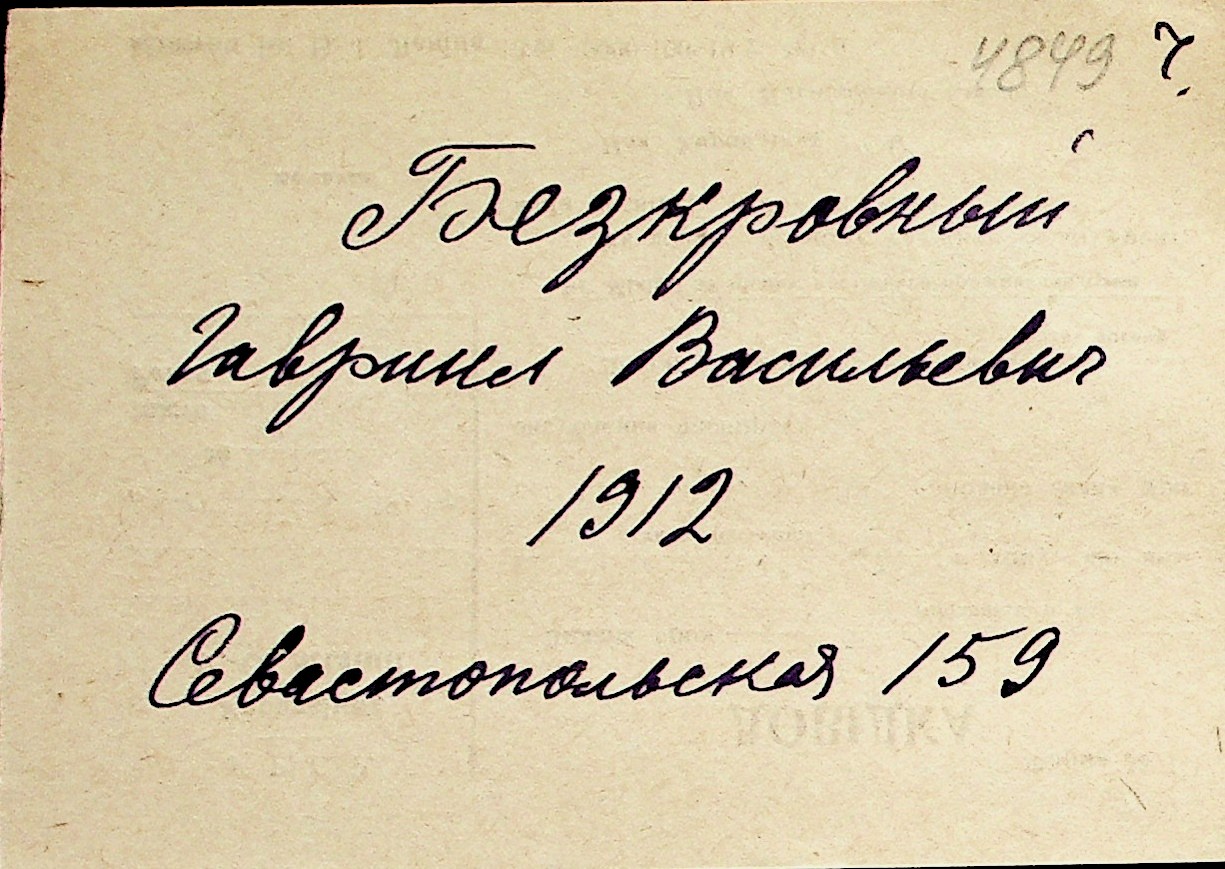 4849 ч.
Безкровный
Гавриил Васильевич
1912
Севастопольская 159